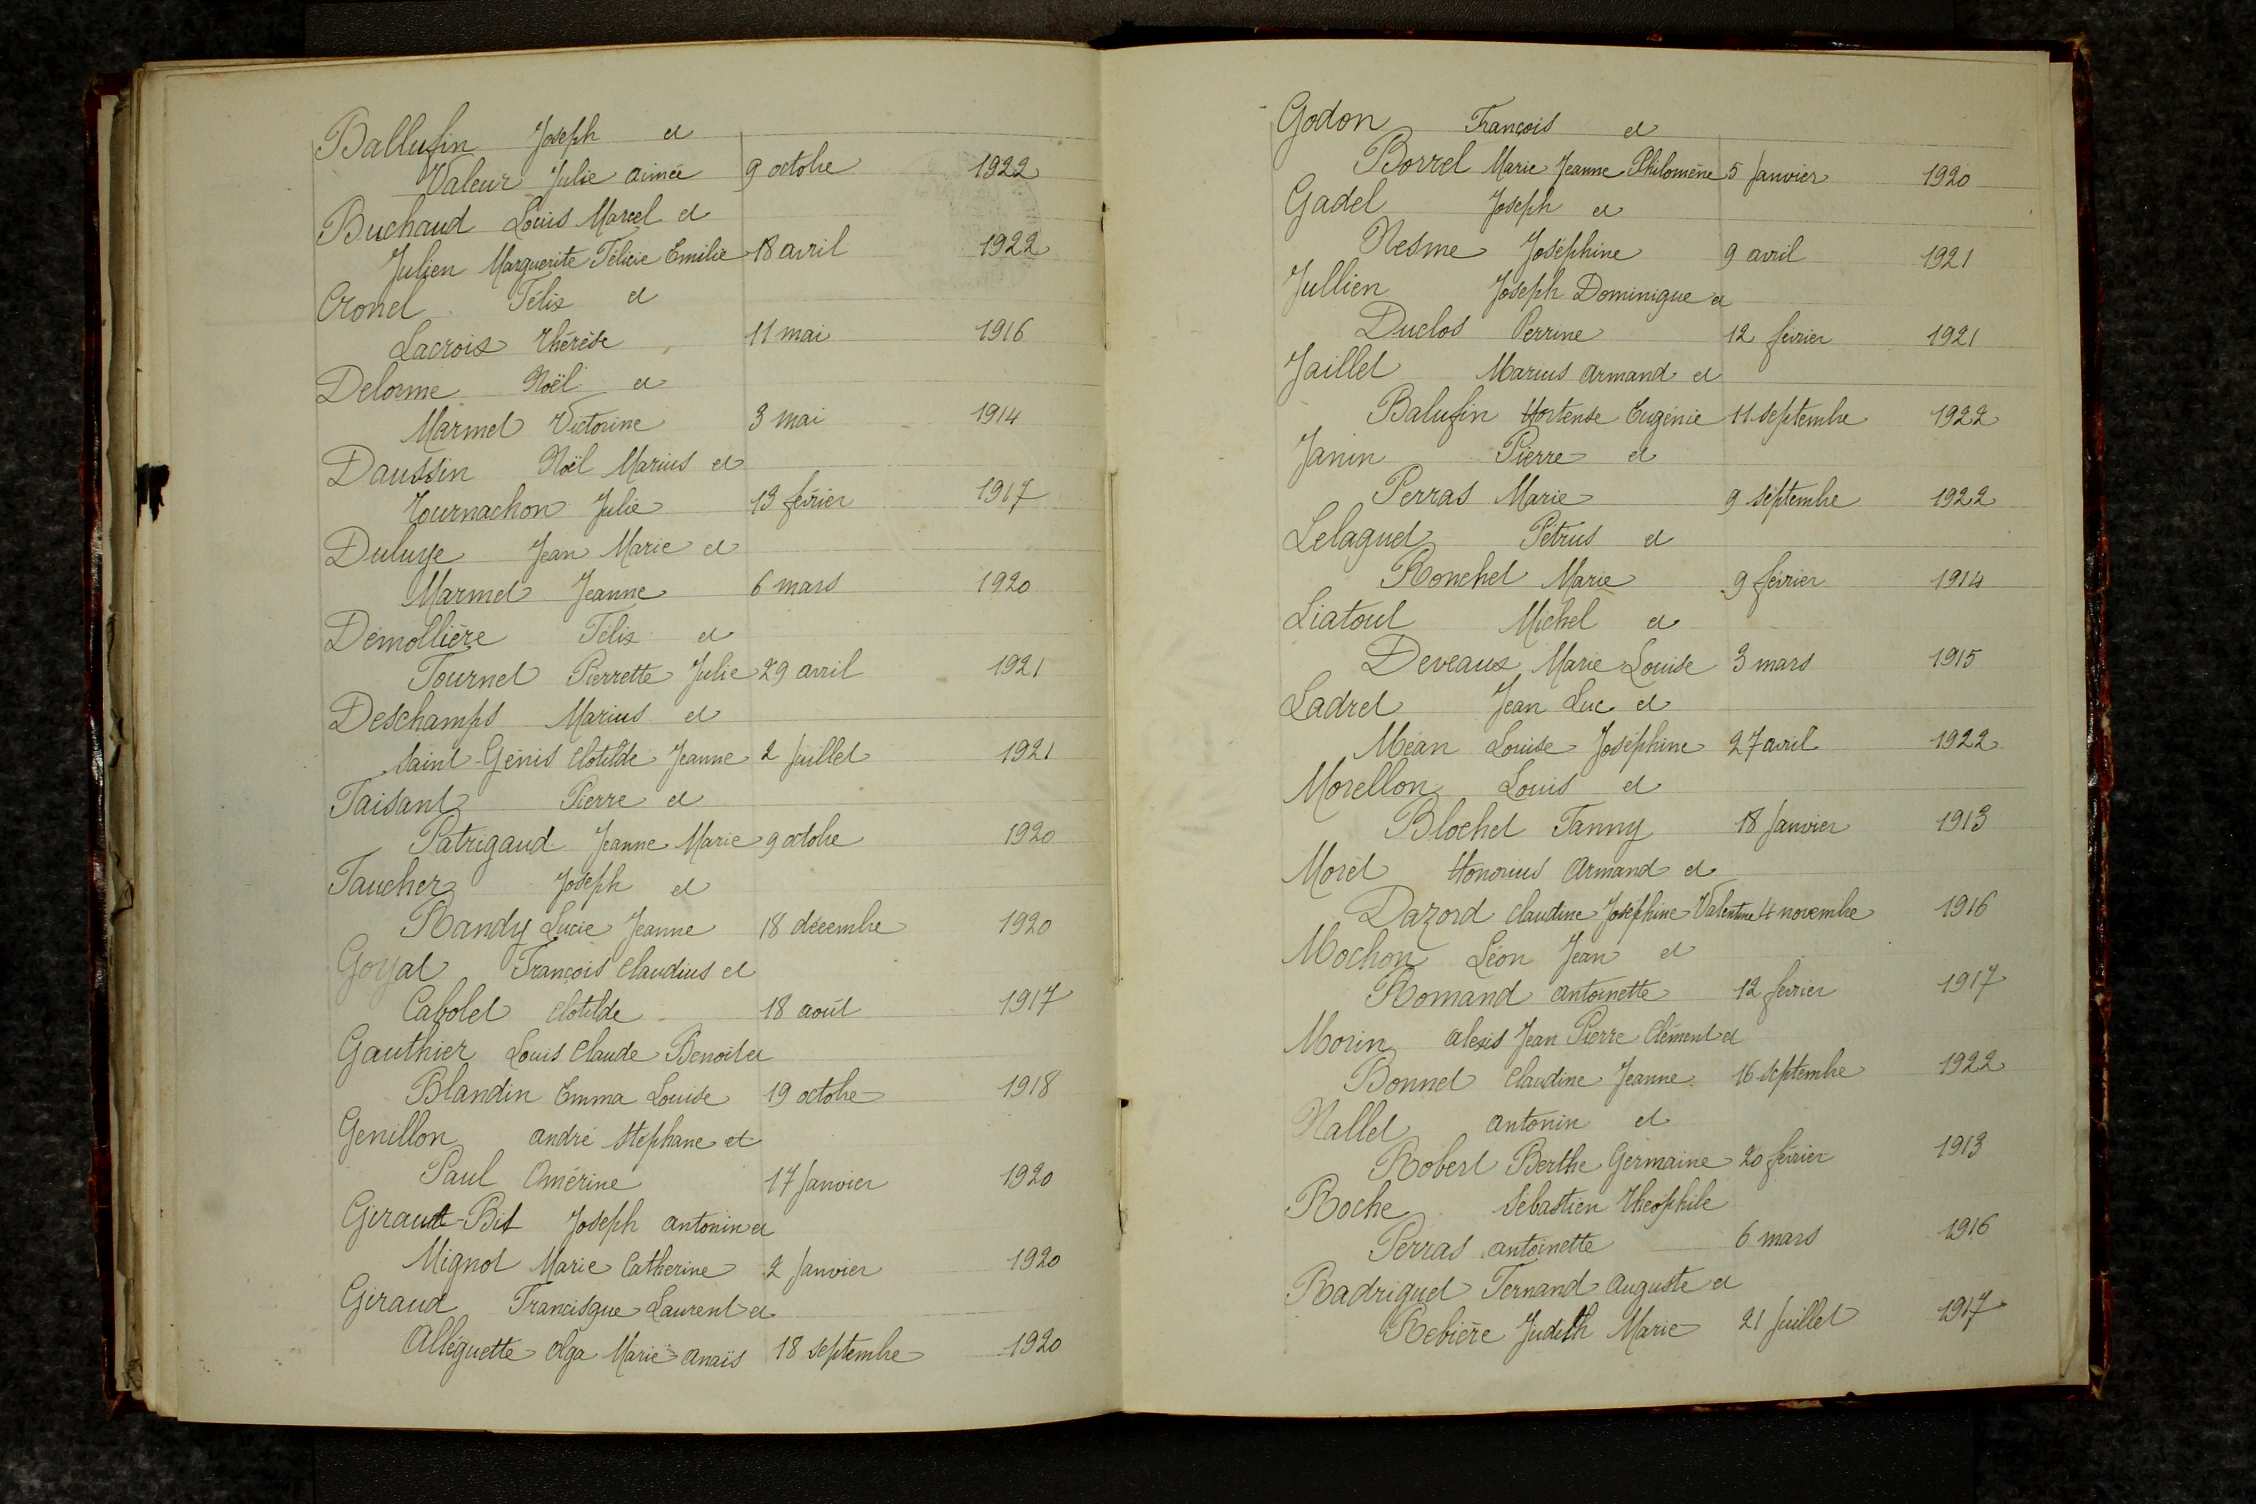 Ballufin Joseph et
Valeur Julie Aimée 9 octobre 1922
Buchaud Louis Marcel et
Julien Marguerite Félicie Emilie 18 avril 1922
Cronel Félix et
Lacroix Thérèse 11 mai 1916
Delorme Noël et
Marmet Victorine 3 mai 1914
Daussin Noël Marius et
Tournachon Julie 13 février 1917
Duluye Jean Marie et
Marmet Jeanne 6 mars 1920
Démollière Félix et
Fournet Pierrette Julie 29 avril 1921
Deschamps Marius et
Saint-Génis Clotilde Jeanne 2 juillet 1921
Faisant Pierre et
Patrigaud Jeanne Marie 9 octobre 1920
Faucher Joseph et
Randy Lucie Jeanne 18 décembre 1920
Goyat François Claudius et
Cabolet Clotilde 18 août 1917
Gauthier Louis Claude Benoit et
Blandin Emma Louise 19 octobre 1918
Genillon André Stéphane et
Paul Omérine 17 janvier 1920
Giraud-Bit Joseph Antonin et
Mignot Marie Catherine 2 janvier 1920
Giraud Francisque Laurent et
Alléguette Olga Marie Anaïs 18 septembre 1920
Godon François et
Borrel Marie Jeanne Philomène 5 janvier 1920
Gadel Joseph et
Nesme Joséphine 9 avril 1921
Jullien Joseph Dominique et
Duclos Perrine 12 février 1921
Jaillet Marius Armand et
Balufin Hortense Eugénie 11 septembre 1922
Janin Pierre et
Perras Marie 9 septembre 1922
Lelaguet Pétrus et
Ronchet Marie 9 février 1914
Liatout Michel et
Deveaux Marie Louise 3 mars 1915
Ladret Jean Luc et
Méan Louise Joséphine 27 avril 1922
Morellon Louis et
Blochet Fanny 18 janvier 1913
Morel Honorius Armand et
Dazord Claudine Joséphine Valentine 4 novembre 1916
Mochon Léon Jean et
Romand Antoinette 12 février 1917
Morin Alexis Jean Pierre Clément et
Bonnet Claudine Jeanne 16 septembre 1922
Nallet Antonin et
Robert Berthe Germaine 20 février 1913
Roche Sébastien Théophile
Perras Antoinette 6 mars 1916
Radriguet Fernand Auguste et
Rebière Judith Marie 21 juillet 1917